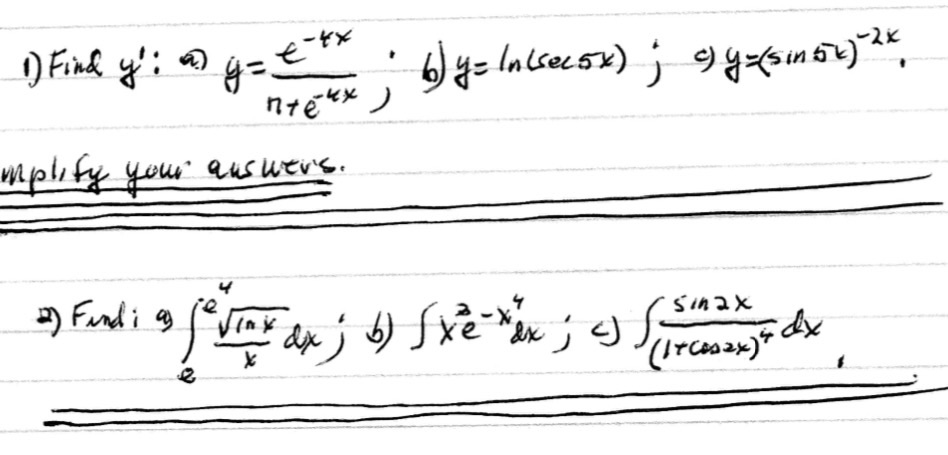 1) Find y': a) y = e^-4x / n+e^-4x ; b) y = ln(sec5x) ; c) y=(sin5x)^-2x .
mplify your answers.
2) Find: a) ∫_e^e^4 √ln x / x dx ; b) ∫x^3 e^-x^4 dx ; c) ∫ sin2x / (1+cos2x)^4 dx .